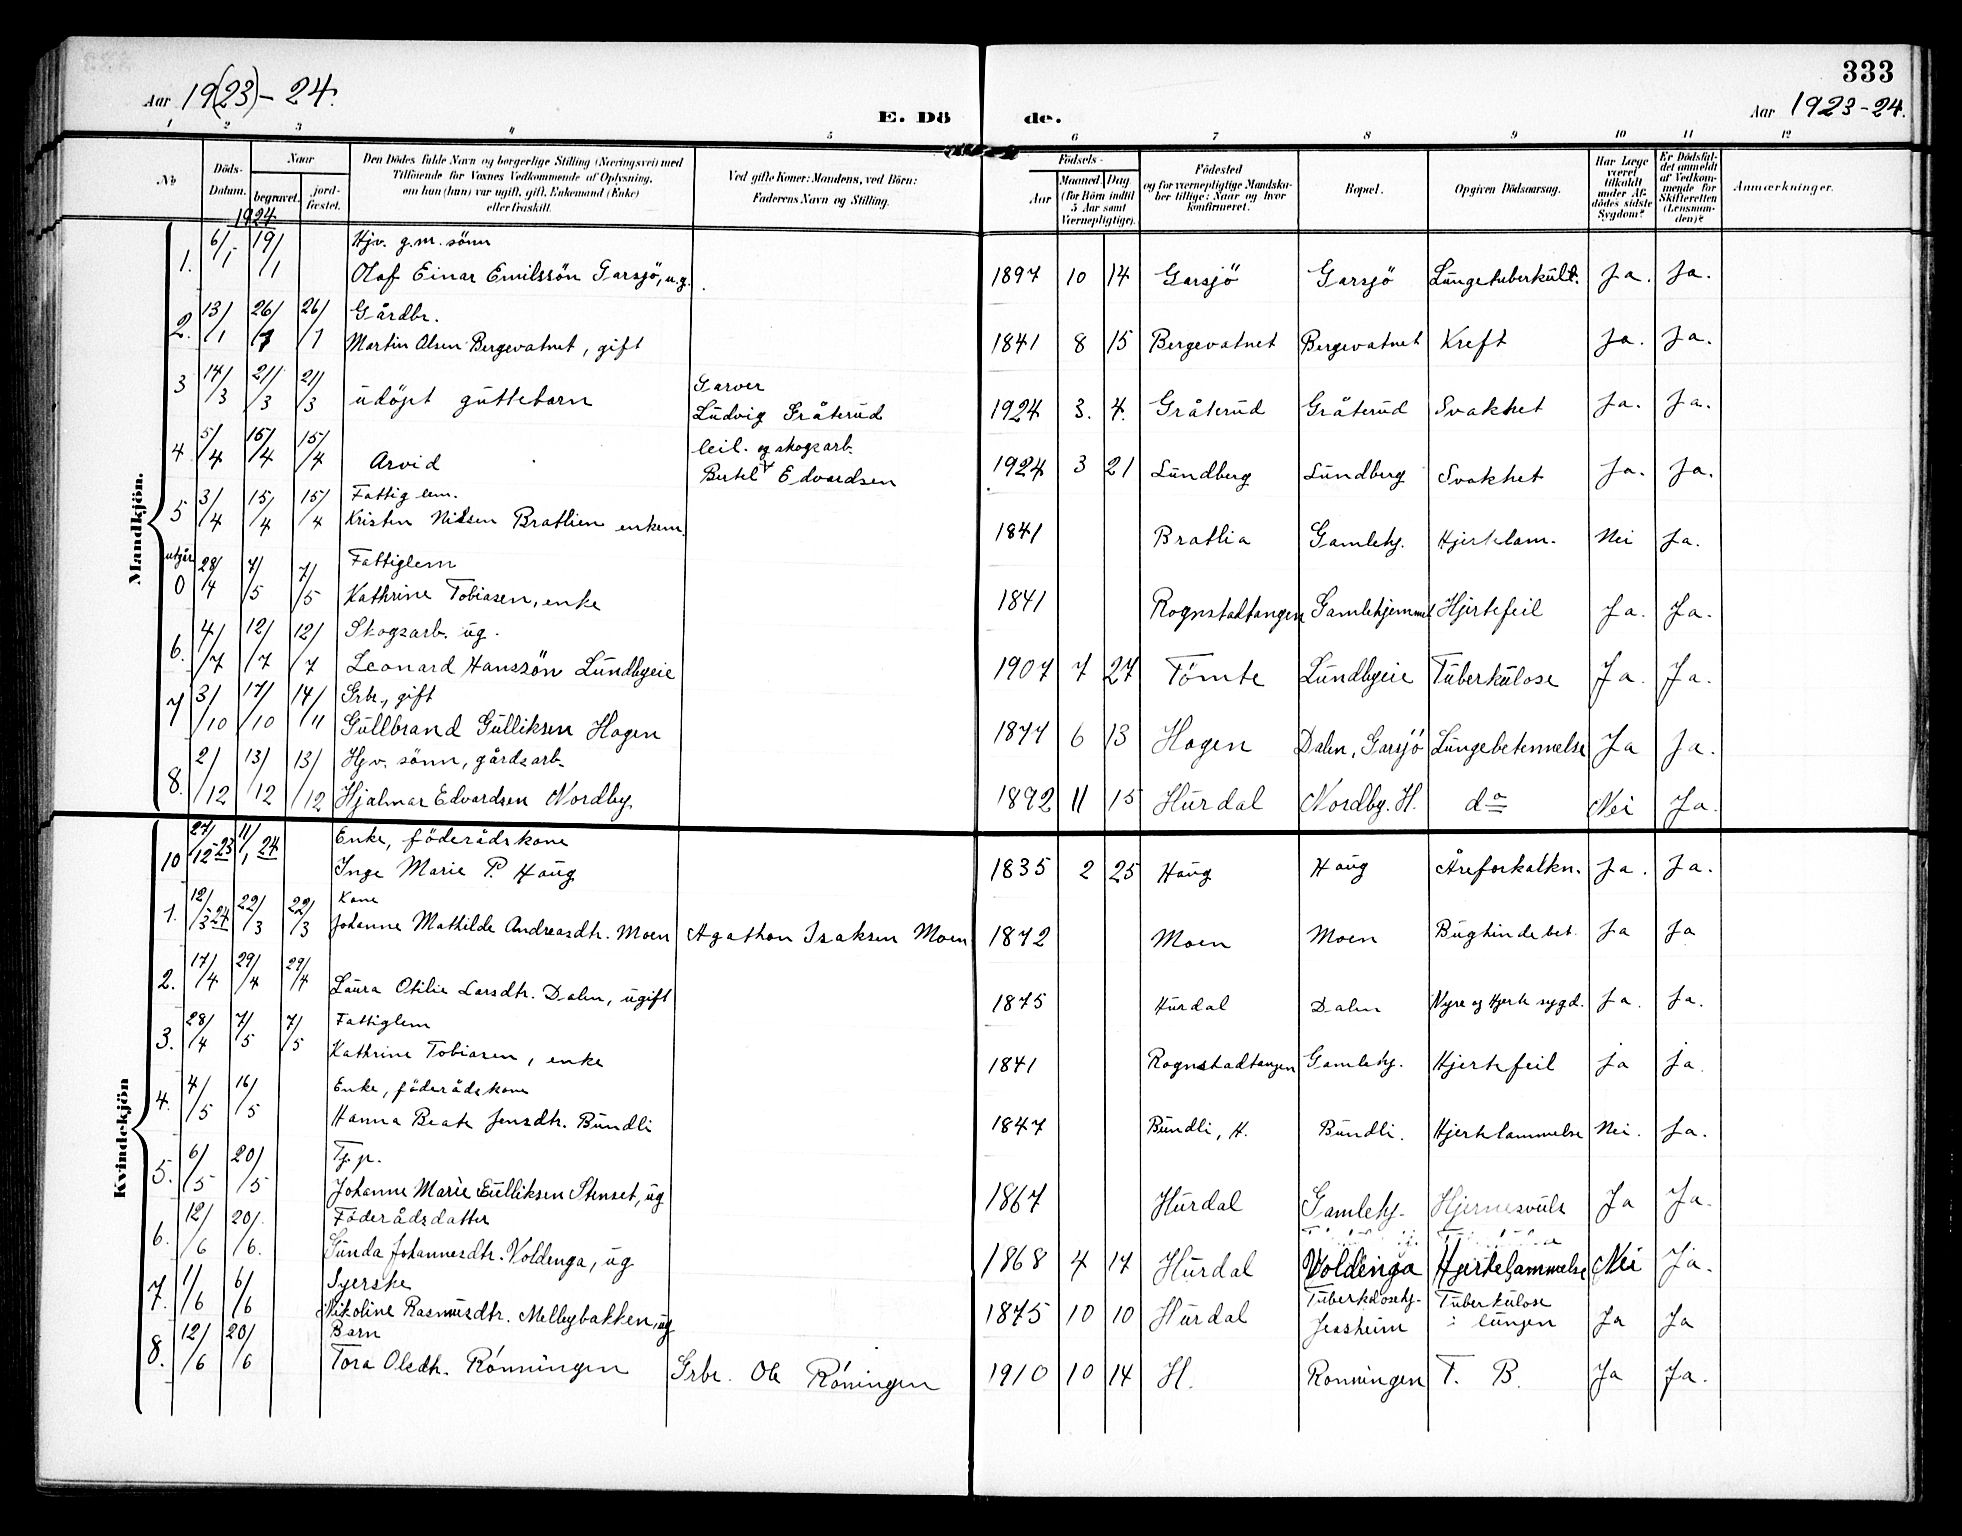 333
Aar 19(23)-24.
E. Dö de.
Aar 1923-24.
1 2 3 4 5 6 7 8 9 10 11 12
No
Döds-Datum.
Naar
begravet.
jordfæstet.
Den Dödes fulde Navn og borgerlige Stilling (Næringsvei) med Tilföiende for Voxnes Vedkommende af Oplysning, om han (hun) var ugift, gift, Enkemand (Enke) eller fraskilt.
Ved gifte Koner: Mandens, ved Börn: Faderens Navn og Stilling.
Födsels-
Aar
Maaned Dag (for Börn indtil 5 Aar samt Værnepligtige).
Födested og for værnepligtige Mandskaber tillige: Naar og hvor konfirmeret.
Bopæl.
Opgiven Dödsaarsag.
Har Læge været tilkaldt under Afdödes sidste Sygdom?
Er Dödsfaldet anmeldt af Vedkommende for Skifteretten (Lensmanden)?
Anmærkninger.
1924
Mandkjön.
1. 6/1 19/1 Hjv. g.m. sönn
Olaf Einar Emilssön Garsjö, u.g. 1897 10 14 Garsjö Garsjö Lungetuberkul. Ja. Ja.
2. 13/1 26/1 26/1 Gårdbr.
Martin Olsen Bergevatnet, gift 1841 8 15 Bergevatnet Bergevatnet Kreft Ja. Ja.
3 14/3 21/3 21/3 udöpt guttebarn Garver
Ludvig Gråterud 1924 3. 4. Gråterud Gråterud Svakhet Ja. Ja.
4 5/4 15/4 15/4 Arvid leil. og skogsarb.
Bertel Edvardsen 1924 3 21 Lundberg Lundberg Svakhet Ja. Ja.
5 3/4 15/4 15/4 Fattiglem.
Kristen Nilsen Bratlien enkem. 1841 Bratlia Gamlehj. Hjertelam. Nei Ja.
utgår
0 28/4 7/5 7/5 Fattiglem
Kathrine Tobiasen, enke 1841 Rognstadtangen Gamlehjemmet Hjertefeil Ja. Ja.
6. 4/7 12/7 12/7 Skogsarb. ug.
Leonard Hanssön Lundbyeie 1907 7 27 Tömte Lundbyeie Tuberkulose Ja. Ja.
7 3/10 17/10 14/11 Grbr., gift
Gullbrand Gulliksen Hagen 1877 6 13 Hagen Dalen, Garsjö Lungebetennelse Ja Ja.
8. 2/12 13/12 13/12 Hjv. sönn, gårdsarb.
Hjalmar Edvardsen Nordby 1892 11 15 Hurdal Nordby. H. do Nei Ja.
Kvindekjön
10 27/12 23 11/1 24 Enke, föderådskone
Inge Marie P. Haug 1835 2 25 Haug Haug Åreforkalkn. Ja. Ja.
1. 12/3 24 22/3 22/3 Kone
Johanne Mathilde Andreasdtr. Moen Agathon Isaksen Moen 1872 Moen Moen Bughindebet. Ja Ja
2. 17/4 29/4 29/4 Laura Otilie Larsdtr. Dalen, ugift 1875 Hurdal Dalen Nyre og Hjerte sygd. Ja. Ja.
3. 28/4 7/5 7/5 Fattiglem
Kathrine Tobiasen, enke 1841 Rognstadtangen Gamlehj. Hjertefeil ja ja.
4. 4/5 16/5 Enke, föderådskone
Hanna Beate Jensdtr. Bundli 1847 Bundli, H. Bundli. Hjertelammelse Nei. Ja.
5. 6/5 20/5 Tj. p.
Johanne Marie Gulliksen Stenset, ug 1867 Hurdal Gamlehj. Hjernesvulst Ja Ja.
6. 12/6 20/6. Föderådsdatter
Gunda Johannesdtr. Voldenga, ug 1868 4 17 Hurdal Voldenga Hjertelammelse Nei Ja.
7. 1/6 6/6 Syerske
Nikoline Rasmusdtr. Melbybakken, ug 1875 10 10 Hurdal Tuberkulosehj. Jessheim Tuberkulose i lungen Ja Ja
8. 12/6 20/6 Barn
Tora Olsdtr. Rönningen Grbr. Ole Röningen 1910 10 14 H. Ronningen T. B. Ja Ja.